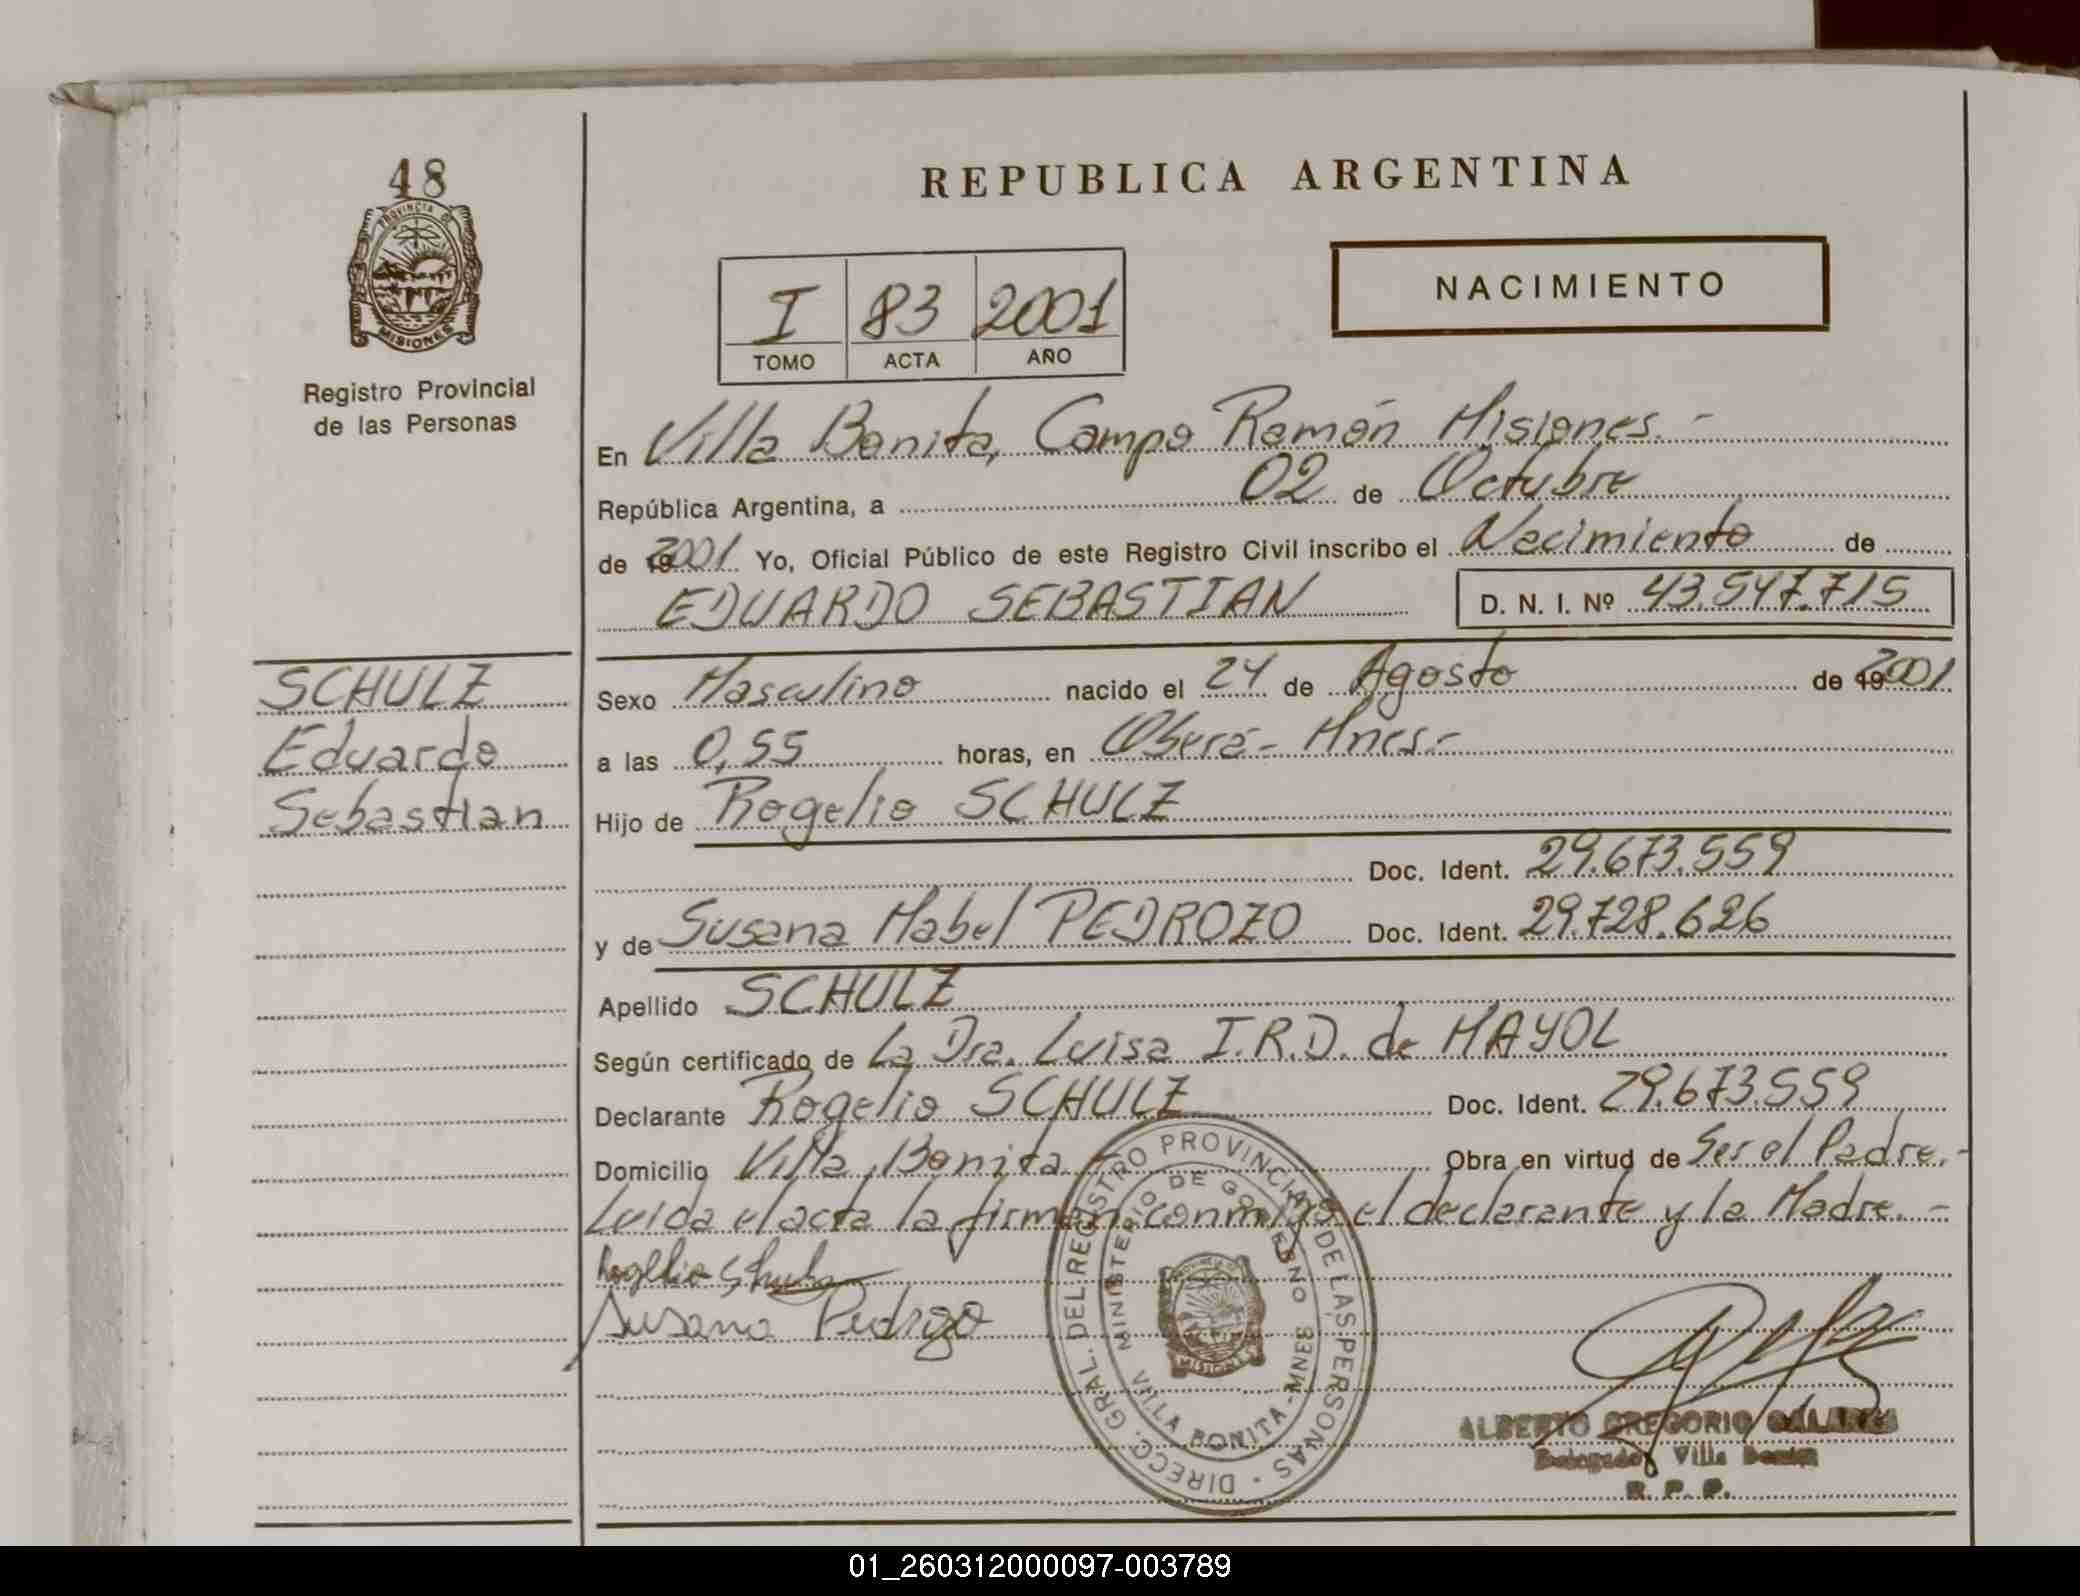 48
PROVINCIA DE
MISIONES
Registro Provincial
de las Personas
SCHULZ
Eduardo
Sebastian
REPUBLICA ARGENTINA
NACIMIENTO
I 83 2001
TOMO ACTA AÑO
En Villa Bonita, Campo Ramón Misiones.-
República Argentina, a 02 de Octubre
de 2001 Yo, Oficial Público de este Registro Civil inscribo el Nacimiento de
EDUARDO SEBASTIAN D. N. I. Nº 43.547.715
Sexo Masculino nacido el 24 de Agosto de 2001
a las 0,55 horas, en Oberá- Mnes.-
Hijo de Rogelio SCHULZ
Doc. Ident. 29.673.559
y de Susana Mabel PEDROZO Doc. Ident. 29.728.626
Apellido SCHULZ
Según certificado de La Dra. Luisa I.R.D. de MAYOL
Declarante Rogelio SCHULZ Doc. Ident. 29.673.559
Domicilio Villa Bonita Obra en virtud de Ser el Padre.-
Leida el acta la firman conmigo el declarante y la Madre.-
Rogelio
Susana
DIRECC. GRAL. DEL REGISTRO PROVINCIAL DE LAS PERSONAS
MINISTERIO DE GOBIERNO
VILLA BONITA - MNES
MISIONES
ALBERTO GREGORIO GALARZA
Delegado Villa Bonita
R. P. P.
01_260312000097-003789